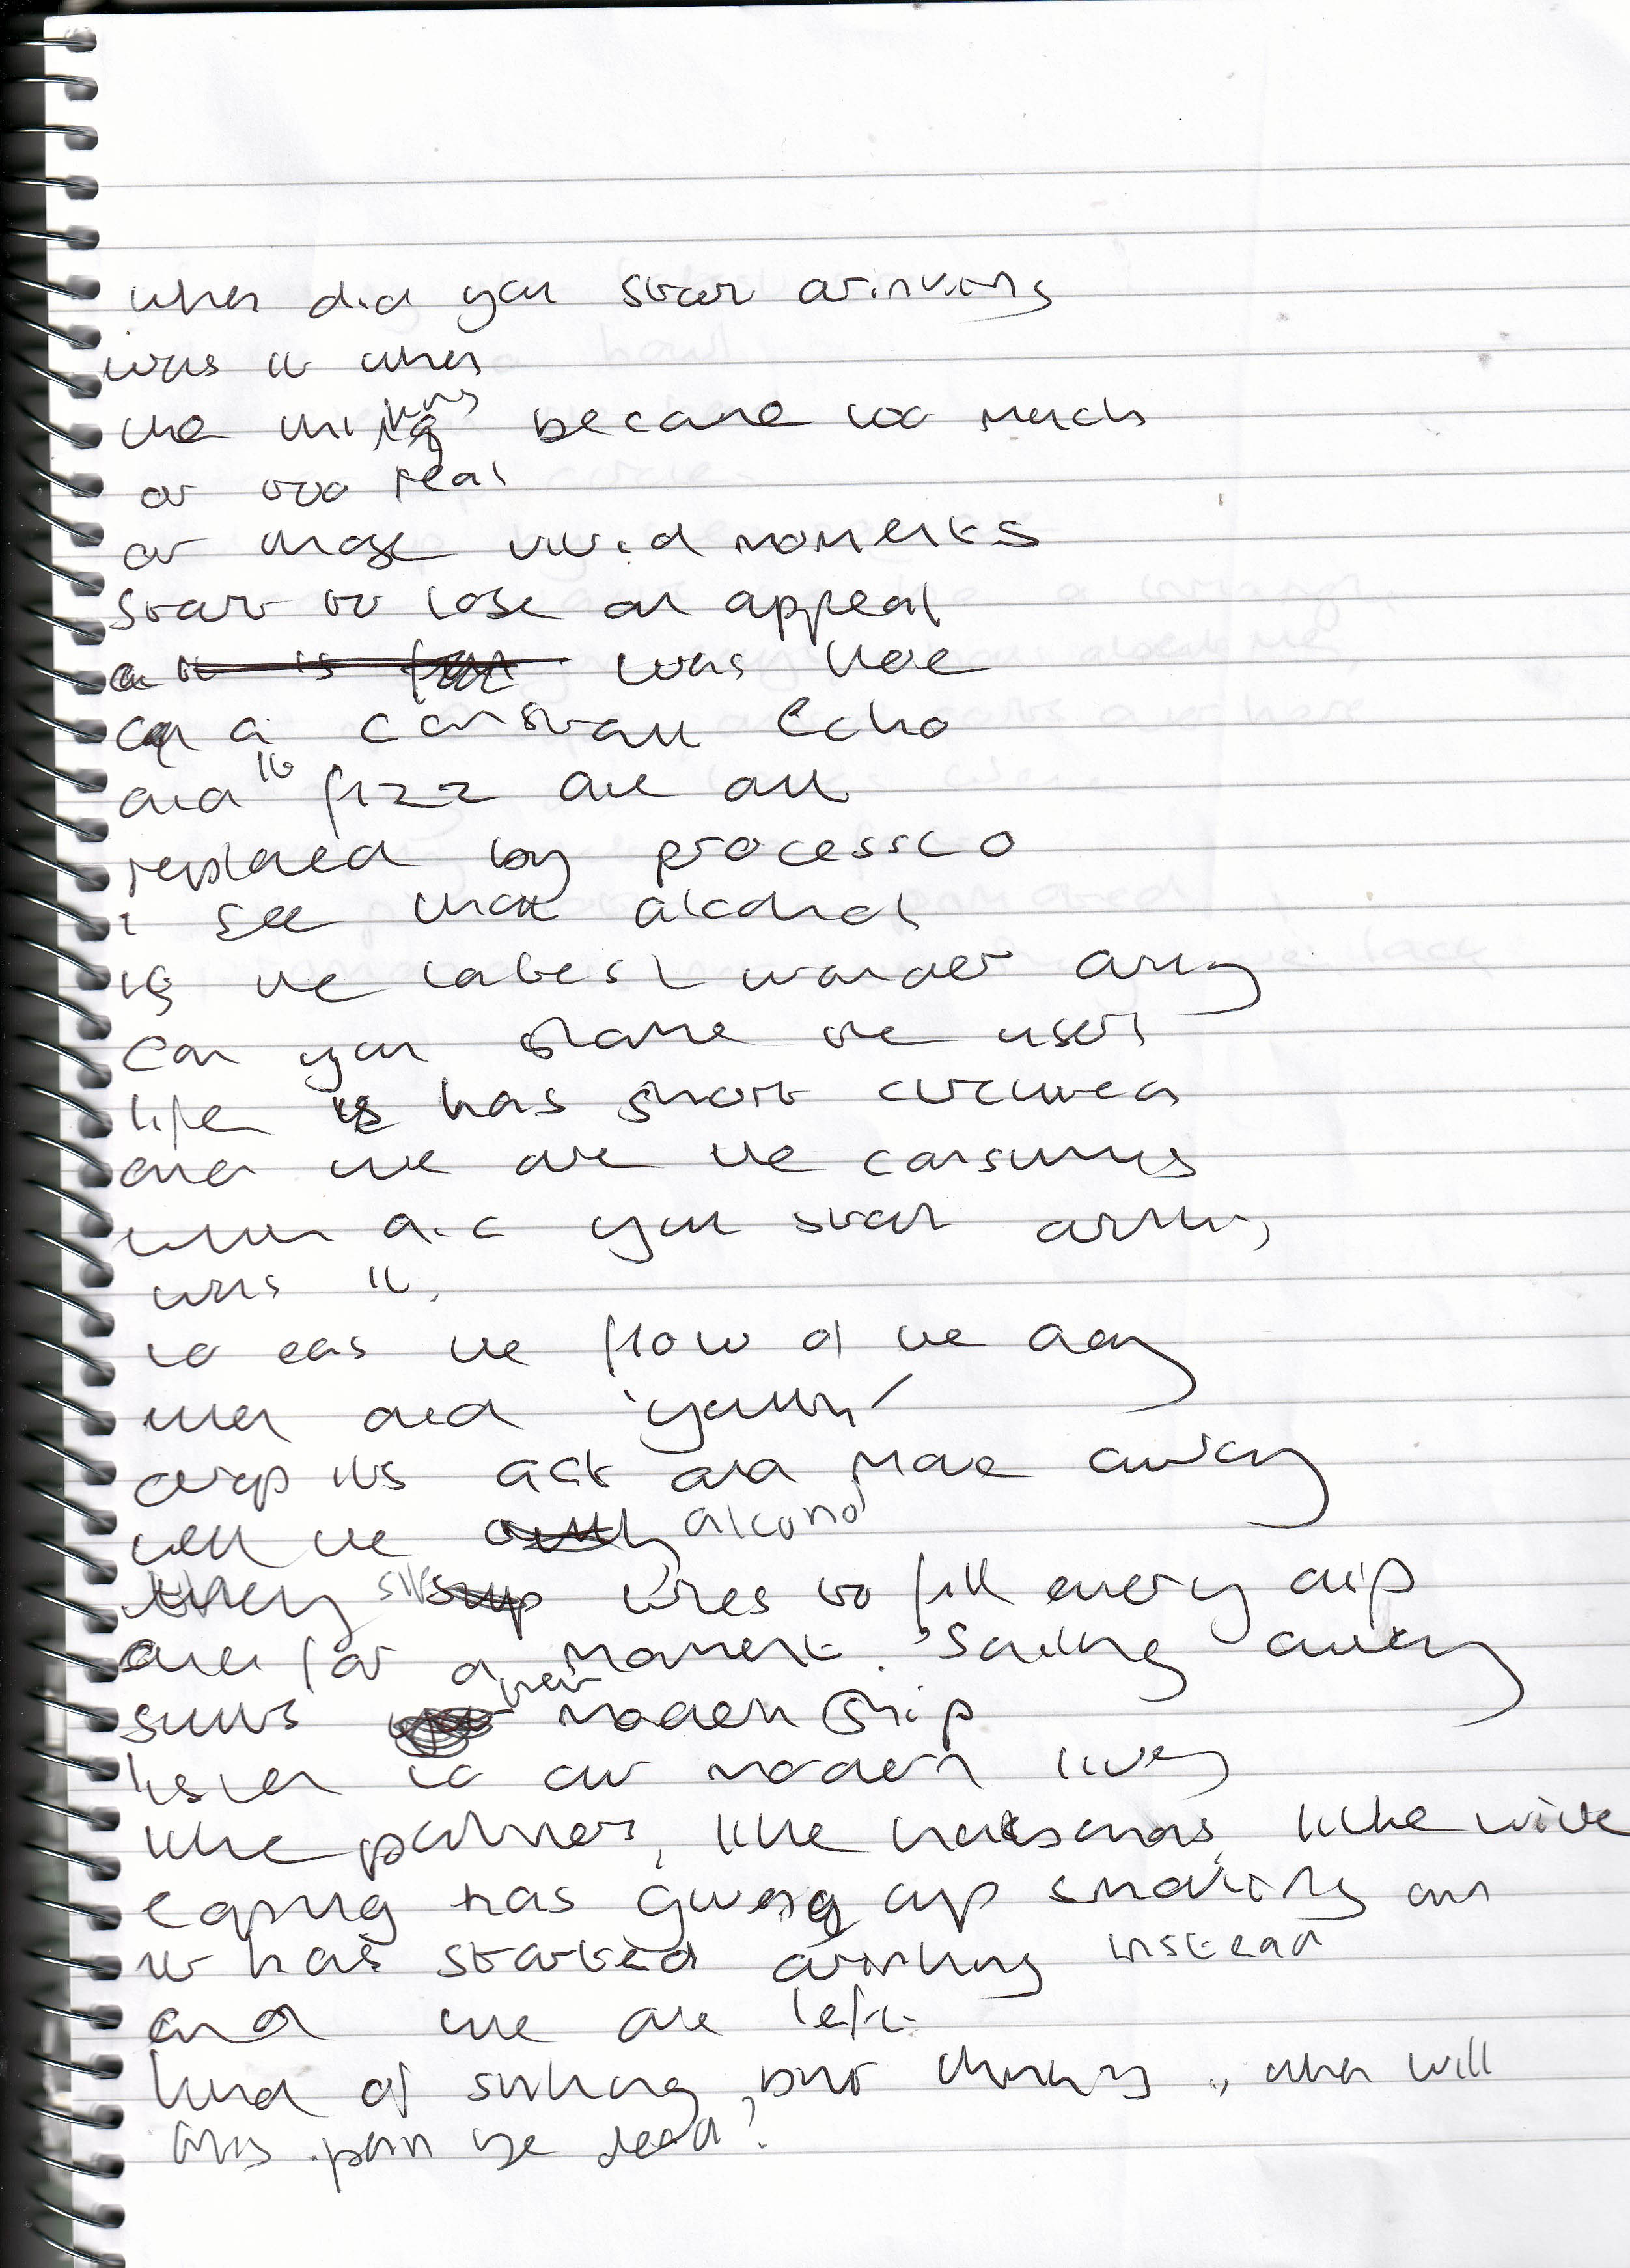 when did you start drinking
was it when
the things became too much
or too real
or those vivid moments
start to lose an appeal
was here
a constant echo
and it fizz are all
replaced by processco
i see that alcohol
is the latest wonder drug
can you blame the users
life has short circuited
and we are the consumers
when did you start drinking
was it
to ease the flow of the day
when and 'youth'
drop its act and move away
well the alcohol
they tires to fill every dip
and for a moment. 'Sailing away'
suits modern ship
listen to our modern living
like partners, like husbands, like wives
has giving up smoking and
it has started drinking instead
and we are left
kind of sinking, but thinking, when will
this pain be dead?